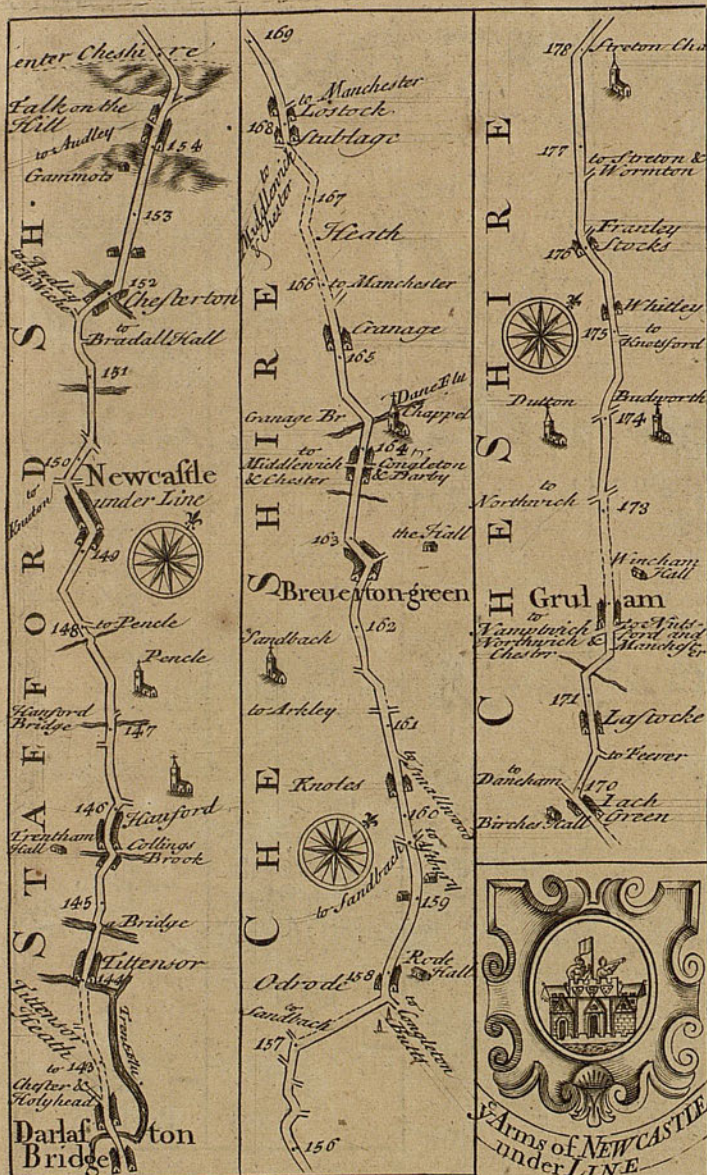 enter Cheshire
Talk on the
Hill
to Audley
154
Gammots
153
to Audley
& W. Wiche
152
Chesterton
to
Bradall Hall
151
150
to
Knuton
Newcastle
under Line
149
148
to Pencle
Pencle
Hanford
Bridge
147
146
Hanford
Trentham
Hall
Collings
Brook
145
Bridge
Tittensor
144
Tittensor
Heath
Trent flu.
to 143
Chester &
Holyhead
Darlaston
Bridge
STAFFORD SH.
169
to Manchester
168
Lostock
Stublage
to
Middlewich
& Chester
167
Heath
166
to Manchester
Cranage
165
Dane Flu
Cranage Br
Chappel
164
to
Middlewich
& Chester
to
Congleton
& Barby
163
the Hall
Brewerton-green
162
Sandbach
to Arkley
161
Knoles
to Smallwood
160
to Astbury
to Sandbach
159
Odrode
158
Rode
Hall
to
Sandbach
to Congleton
157
156
CHESHIRE
178
Streton Cha
177
to Streton &
Wormton
176
Franley
Stocks
Whitley
175
to
Knotsford
Dutton
Budworth
174
to
Northwich
173
Wincham
Hall
Grullam
to
Namptwich
Northwich &
Chestrr
to Nuts-
ford and
Manchest-
er
171
Lastocke
to Peever
to
Daneham
170
Lach
Green
Birches Hall
CHESHIRE
yᵉ Arms of NEWCASTLE
under LINE